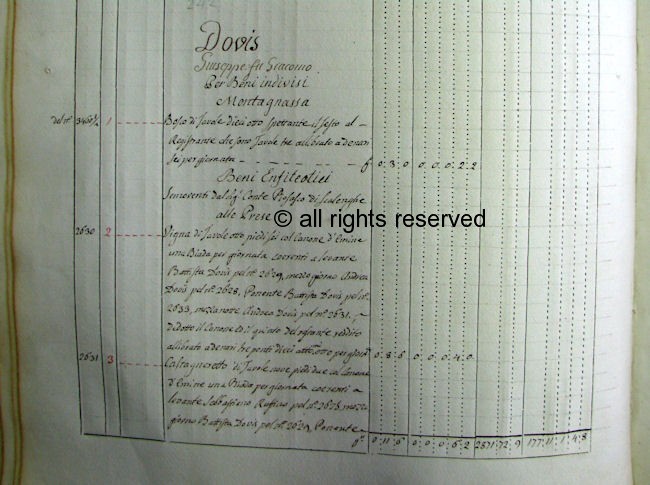 242
Dovis
Giuseppe fu Giacomo
Per Beni indivisi
Montagnassa
del n.° 3460½ 1 Bosco di tavole dieci otto spettante il sesto al
Registrante che sono tavole tre alibrato a denari
sei per giornata f 0:3:0 0:0:0:2:2
Beni Enfiteotici
dal Sig.r Conte di Scalenghe
alle Prese
© all rights reserved
2630 2 Vigna di tavole otto piedi sei col Canone d'Emine
una Biada per giornata coerenti a levante
Battista Dovis pel n.° 2629, mezzo giorno Andrea
Dovis pel n.° 2628, Ponente Battista Dovis pel n.°
2633, mezzanotte Andrea Dovis pel n.° 2631,
dedotto il Canone ed il quinto del restante reddito
alibrato a denari tre ponti dieci otto per giorn.ta 0:8:6 0:0:0:4:0
2631 3 Castagneretto di tavole nove piedi due col Canone
d'Emine una Biada per giornata coerenti a
levante Sebastiano Ruffino pel n.° mezzo
giorno Battista Dovis pel n.° 2629, Ponente
0:11:6 0:0:0:6:2 2871:72:9 177:11:1:4:8